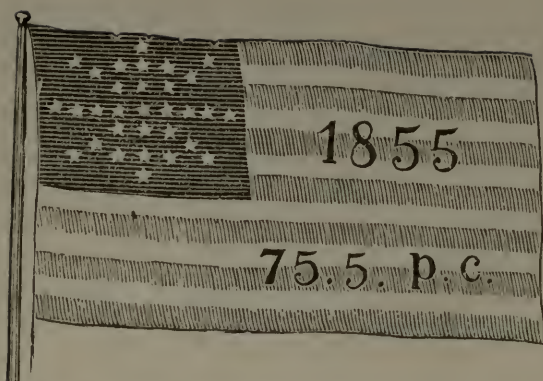 1855
75.5. p.c.